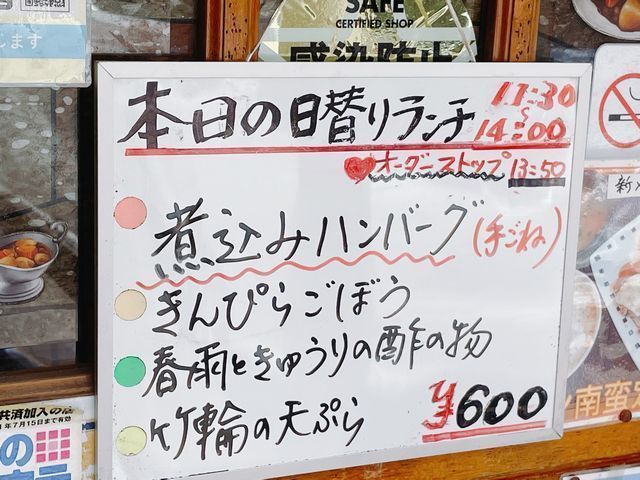 SAFE
CERTIFIED SHOP
感染防止
本日の日替りランチ
11:30
〜
14:00
オーダーストップ 13:50
煮込みハンバーグ(手ごね)
きんぴらごぼう
春雨ときゅうりの酢の物
竹輪の天ぷら
¥600
共済加入の店
7月15日まで有効
の
新
南蛮
じます